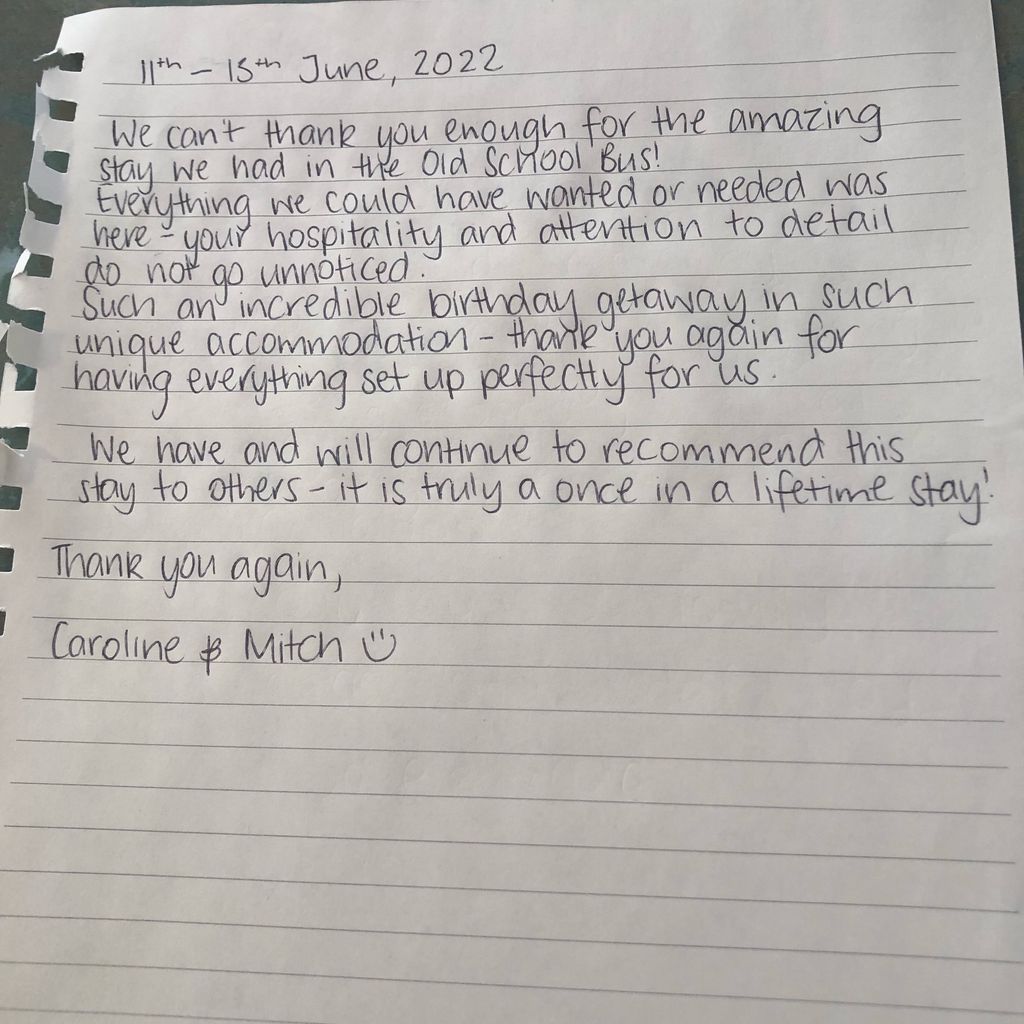 11th - 15th June, 2022
We can't thank you enough for the amazing
stay we had in the Old School Bus!
Everything we could have wanted or needed was
here - your hospitality and attention to detail
do not go unnoticed.
Such an incredible birthday getaway in such
unique accommodation - thank you again for
having everything set up perfectly for us.
We have and will continue to recommend this
stay to others - it is truly a once in a lifetime stay!
Thank you again,
Caroline & Mitch :)